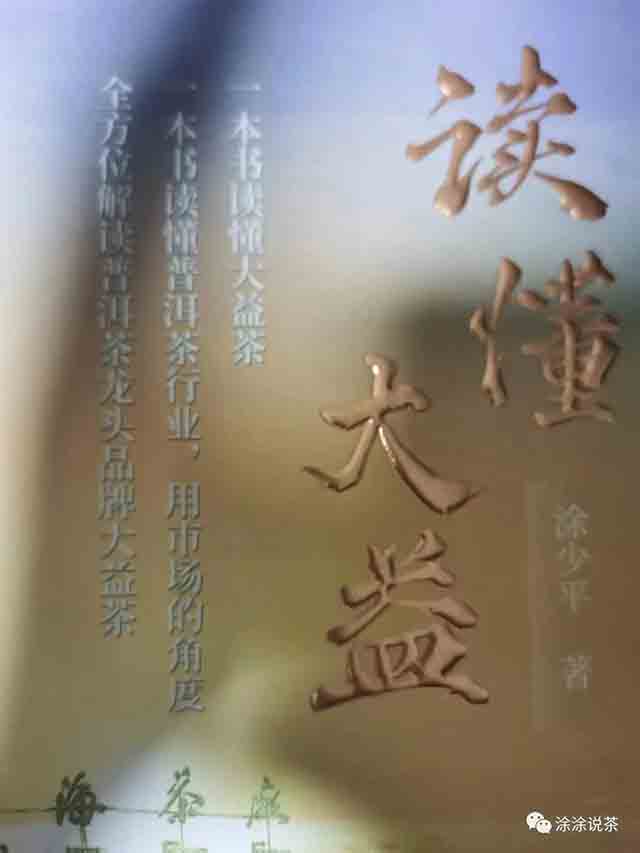 读懂
大益
涂少平 著
一本书读懂大益茶
一本书读懂普洱茶行业，用市场的角度
全方位解读普洱茶龙头品牌大益茶
海茶
涂涂说茶